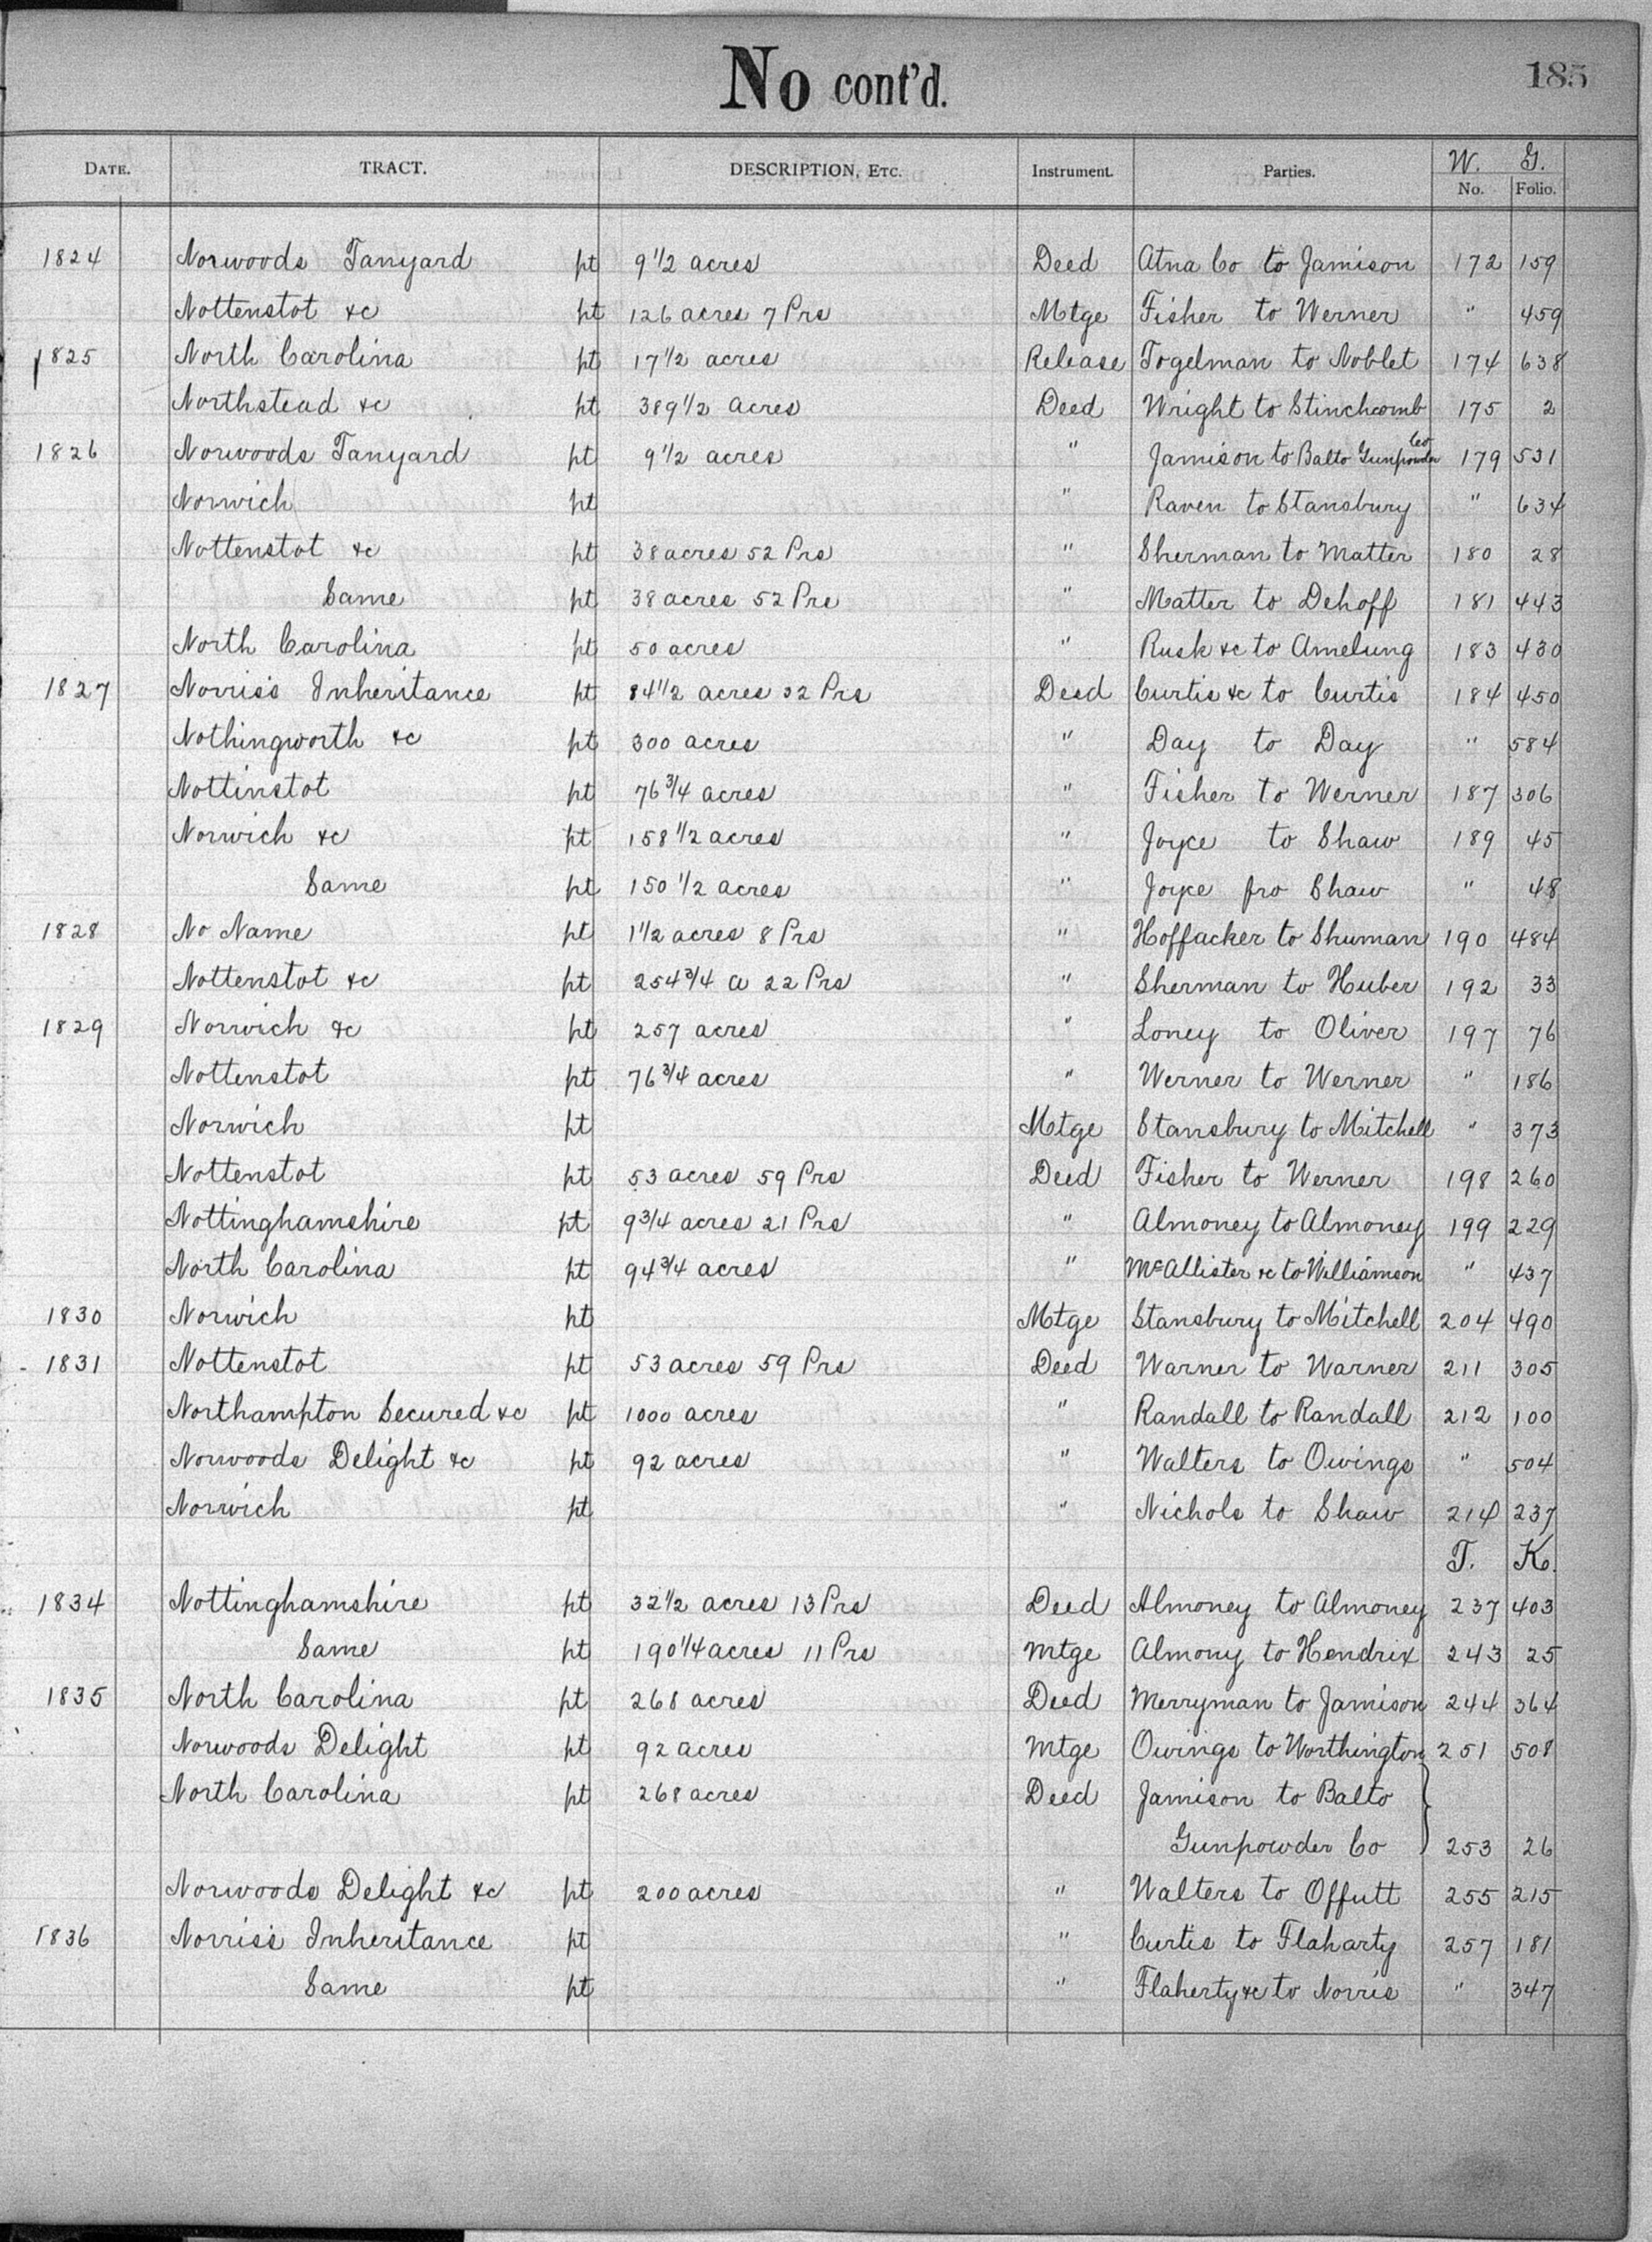 No cont'd.
185
DATE. TRACT. DESCRIPTION, ETC. Instrument. Parties. W. G.
No. Folio.
1824 Norwoods Tanyard pt 9 1/2 acres Deed Atna Co to Jamison 172 159
Nottenstot &c pt 126 acres 7 Prs Mtge Fisher to Werner " 459
1825 North Carolina pt 17 1/2 acres Release Fogelman to Noblet 174 638
Northstead &c pt 389 1/2 acres Deed Wright to Stinchcomb 175 2
1826 Norwoods Tanyard pt 9 1/2 acres " Jamison to Balto Gunpowder Co 179 531
Norwich pt " Raven to Stansbury " 634
Nottenstot &c pt 38 acres 52 Prs " Sherman to Matter 180 28
Same pt 38 acres 52 Prs " Matter to Dehoff 181 443
North Carolina pt 50 acres " Rusk &c to Amelung 183 430
1827 Norris's Inheritance pt 84 1/2 acres 32 Prs Deed Curtis &c to Curtis 184 450
Nothingworth &c pt 300 acres " Day to Day " 584
Nottinstot pt 76 3/4 acres " Fisher to Werner 187 306
Norwich &c pt 158 1/2 acres " Joyce to Shaw 189 45
Same pt 150 1/2 acres " Joyce fro Shaw " 48
1828 No Name pt 1 1/2 acres 8 Prs " Hoffacker to Shuman 190 484
Nottenstot &c pt 254 3/4 a 22 Prs " Sherman to Huber 192 33
1829 Norwich &c pt 257 acres " Loney to Oliver 197 76
Nottenstot pt 76 3/4 acres " Werner to Werner " 186
Norwich pt Mtge Stansbury to Mitchell " 373
Nottenstot pt 53 acres 59 Prs Deed Fisher to Werner 198 260
Nottinghamshire pt 9 3/4 acres 21 Prs " Almoney to Almoney 199 229
North Carolina pt 94 3/4 acres " McAllister &c to Williamson " 437
1830 Norwich pt Mtge Stansbury to Mitchell 204 490
1831 Nottenstot pt 53 acres 59 Prs Deed Warner to Warner 211 305
Northampton Secured &c pt 1000 acres " Randall to Randall 212 100
Norwoods Delight &c pt 92 acres " Walters to Owings " 504
Norwich pt " Nichols to Shaw 214 237
T. K.
1834 Nottinghamshire pt 32 1/2 acres 13 Prs Deed Almoney to Almoney 237 403
Same pt 190 1/4 acres 11 Prs Mtge Almony to Hendrix 243 25
1835 North Carolina pt 268 acres Deed Merryman to Jamison 244 364
Norwoods Delight pt 92 acres Mtge Owings to Worthington 251 508
North Carolina pt 268 acres Deed Jamison to Balto
Gunpowder Co 253 26
Norwoods Delight &c pt 200 acres " Walters to Offutt 255 215
1836 Norris's Inheritance pt " Curtis to Flaharty 257 181
Same pt " Flaherty &c to Norris " 347